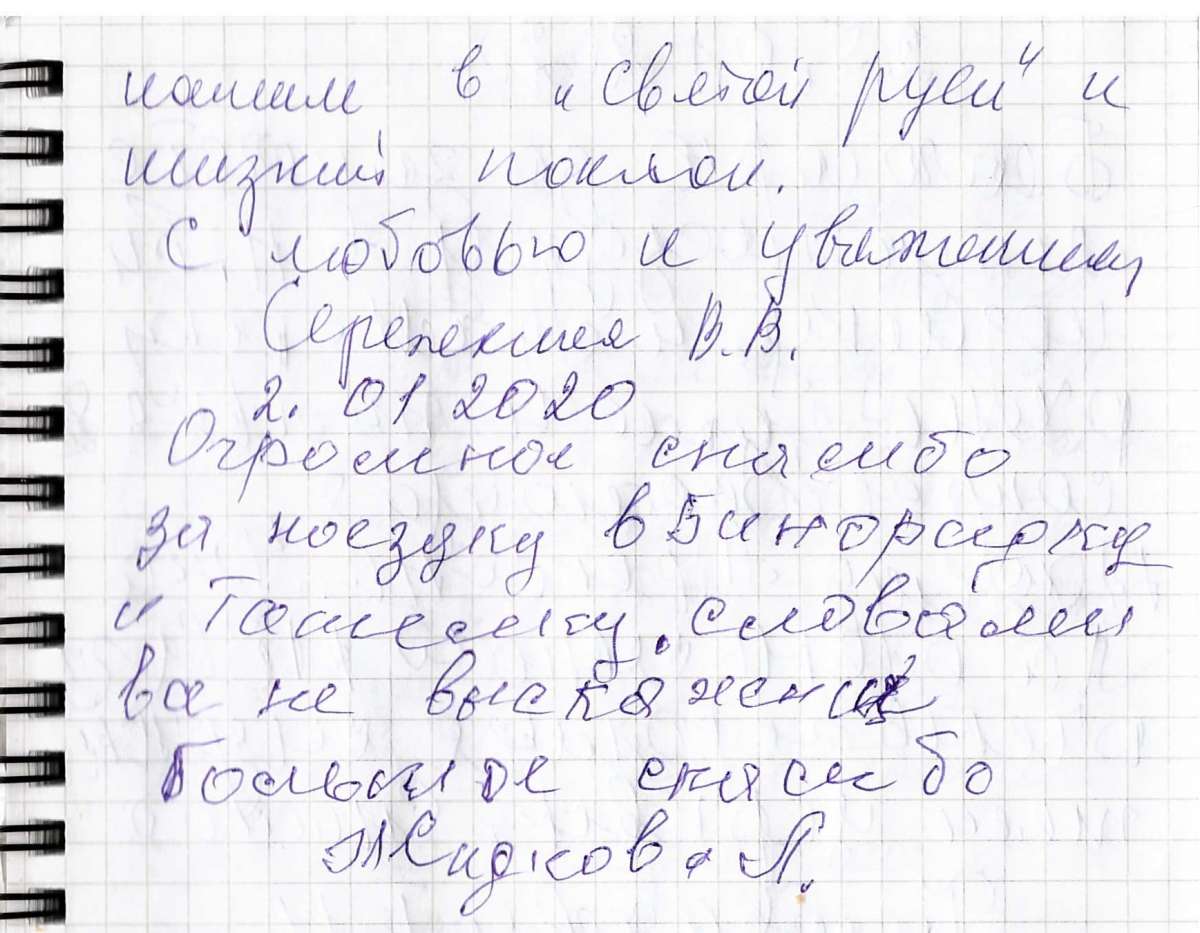 нашим в "святой руси" и
низкий поклон.
С любовью и уважением
В.В.
2. 01 2020
Огромное спасибо
за поездку в
и словами
все не выскажешь
Большое спасибо
Жидкова Л.